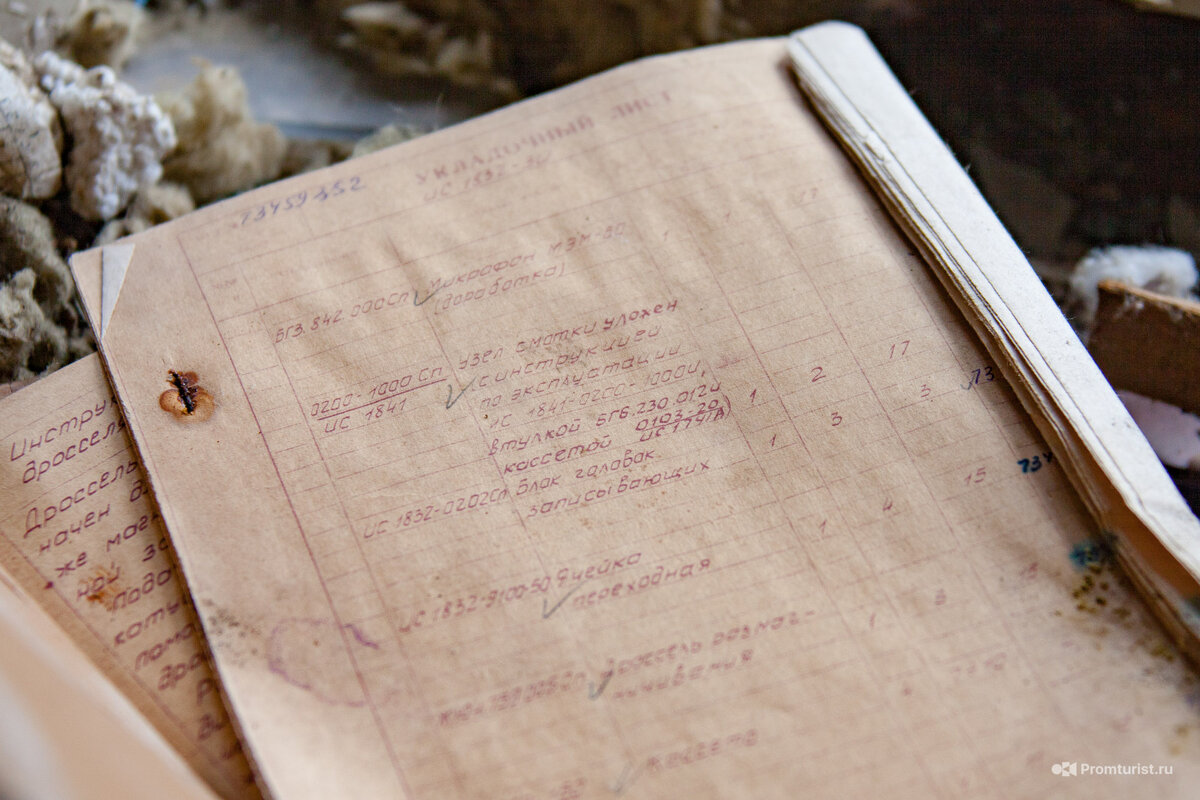 УКЛАДОЧНЫЙ ЛИСТ
ИС 1832-50
73459352
БГ3.842.000Сп Микрофон МЭМ-60 1 17
(доработка)
0200-1000Сп Узел смотки уложен
ИС 1841 с инструкцией
по эксплуатации
ИС 1841-0200-1000И,
втулкой БГ6.230.012и 1 2 17
кассетой 0103-20
ИС1791А)
ИС 1832-0202Сп Блок головок 1 3 3 73
записывающих
734
ИС 1832-9100-50 Ячейка 1 4 15
переходная
Дроссель размаг- 1
ничивания
Кассета
Инструк
дроссель
Дроссель
начен д
же маг
ной за
пода
кату
пома
дро
Promturist.ru